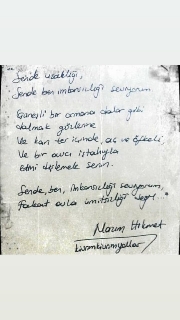 Sende uzaklığı,
Sende ben imkansızlığı seviyorum
Güneşli bir ormana dalar gibi
dalmak gözlerine
Ve kan ter içinde, aç ve öfkeli,
Ve bir avcı iştahıyla
etini dişlemek senin.
Sende, ben, imkansızlığı seviyorum,
Fakat asla ümitsizliği değil
Nazım Hikmet